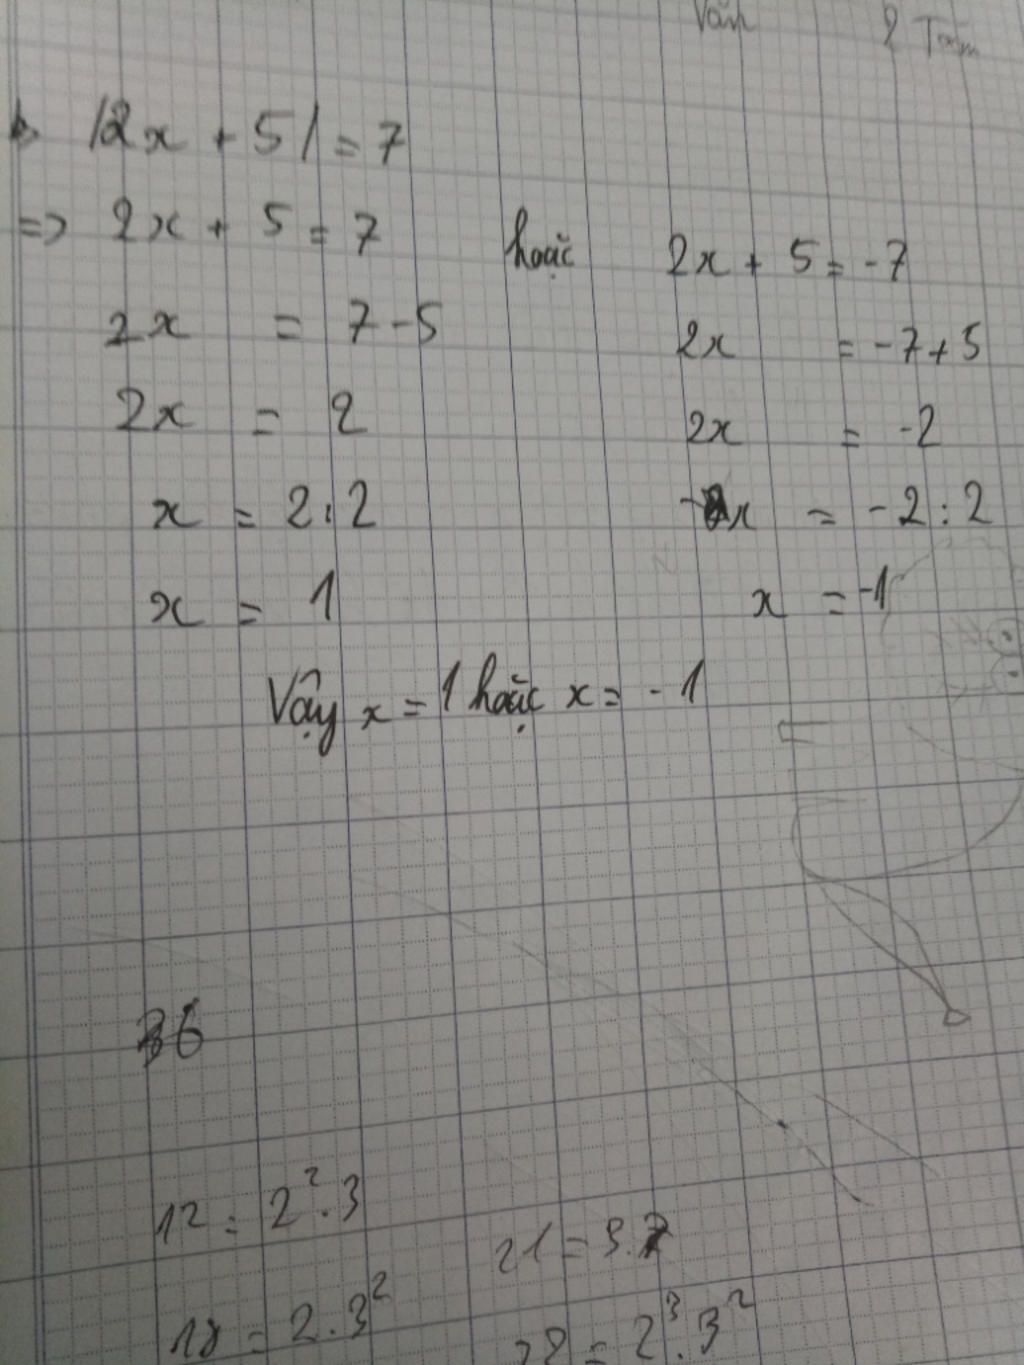 Văn 2 Toán
b, |2x + 5| = 7
=> 2x + 5 = 7 hoặc 2x + 5 = -7
2x = 7 - 5 2x = -7 + 5
2x = 2 2x = -2
x = 2 : 2 x = -2 : 2
x = 1 x = -1
Vậy x = 1 hoặc x = -1
B6
12 = 2². 3 21 = 3.7
18 = 2 . 3² = 2³. 3²